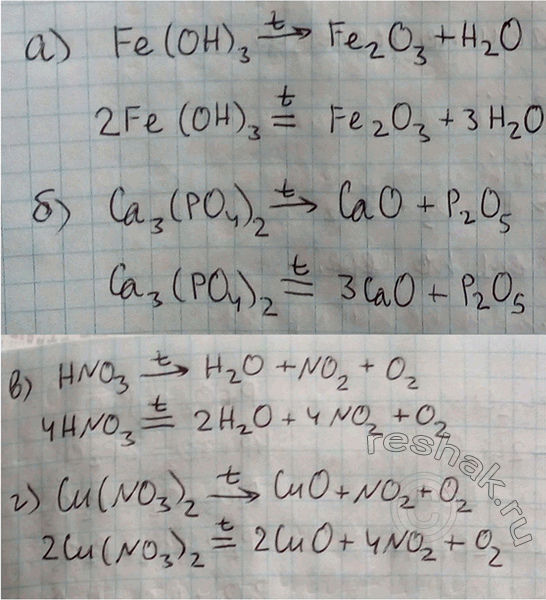 а) Fe(OH)₃ →ᵗ Fe₂O₃ + H₂O
2Fe(OH)₃ =ᵗ Fe₂O₃ + 3H₂O
б) Ca₃(PO₄)₂ →ᵗ CaO + P₂O₅
Ca₃(PO₄)₂ =ᵗ 3CaO + P₂O₅
в) HNO₃ →ᵗ H₂O + NO₂ + O₂
4HNO₃ =ᵗ 2H₂O + 4NO₂ + O₂
г) Cu(NO₃)₂ →ᵗ CuO + NO₂ + O₂
2Cu(NO₃)₂ =ᵗ 2CuO + 4NO₂ + O₂
reshak.ru